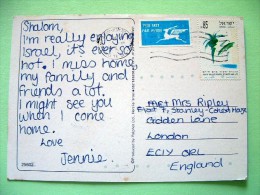 Shalom,
I'm really enjoying
Israel, it's ever so
hot. I miss home,
my family and
friends a lot.
I might see you
when I come
home.
Love
Jennie.
.85
Mrs Ripley
Flat 7, Stanley-Cohen House
Golden Lane
London
EC1Y ORL
England